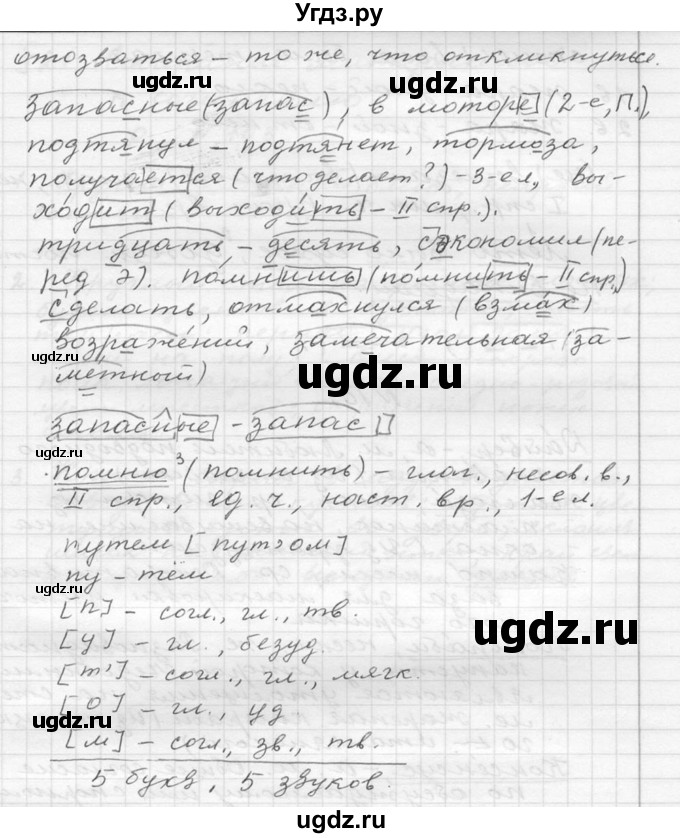 Угдз.ру
отозваться – то же, что откликнуться.
ugdz.ru ugdz.ru
запасные (запас), в моторе (2-е, П.),
подтянул – подтянет, тормоза,
получается (что делает?) – 3-е л., вы-
ходит (выходить – II спр.).
тридцать – десять, сэкономил (пе-
ред э). помнишь (помнить – II спр.)
сделать, отмахнулся (взмах)
возражений, замечательная (за-
ugdz.ru ugdz.ru
метный)
запасные – запас
помню³ (помнить) – глаг., несов. в.,
II спр., ед. ч., наст. вр., 1-е л.
путем [пут'ом]
ugdz.ru
пу – тём
[п] – согл., гл., тв.
ugdz.ru
[у] – гл., безуд.
[т'] – согл., гл., мягк.
[о] – гл., уд
ugdz.ru
[м] – согл., зв., тв.
5 букв, 5 звуков.
ugdz.ru ugdz.ru
ugdz.ru